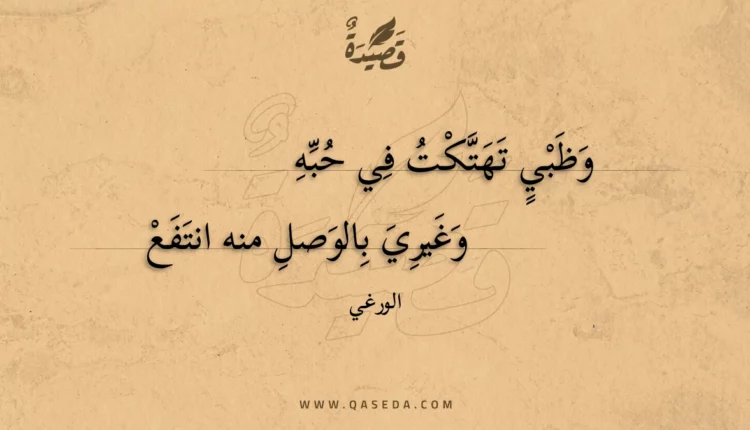 قَصِيدَةٌ
وَظَبْيٍ تَهَتَّكْتُ فِي حُبِّهِ
وَغَيرِيَ بِالوَصلِ منه انتَفَعْ
الورغي
WWW.QASEDA.COM